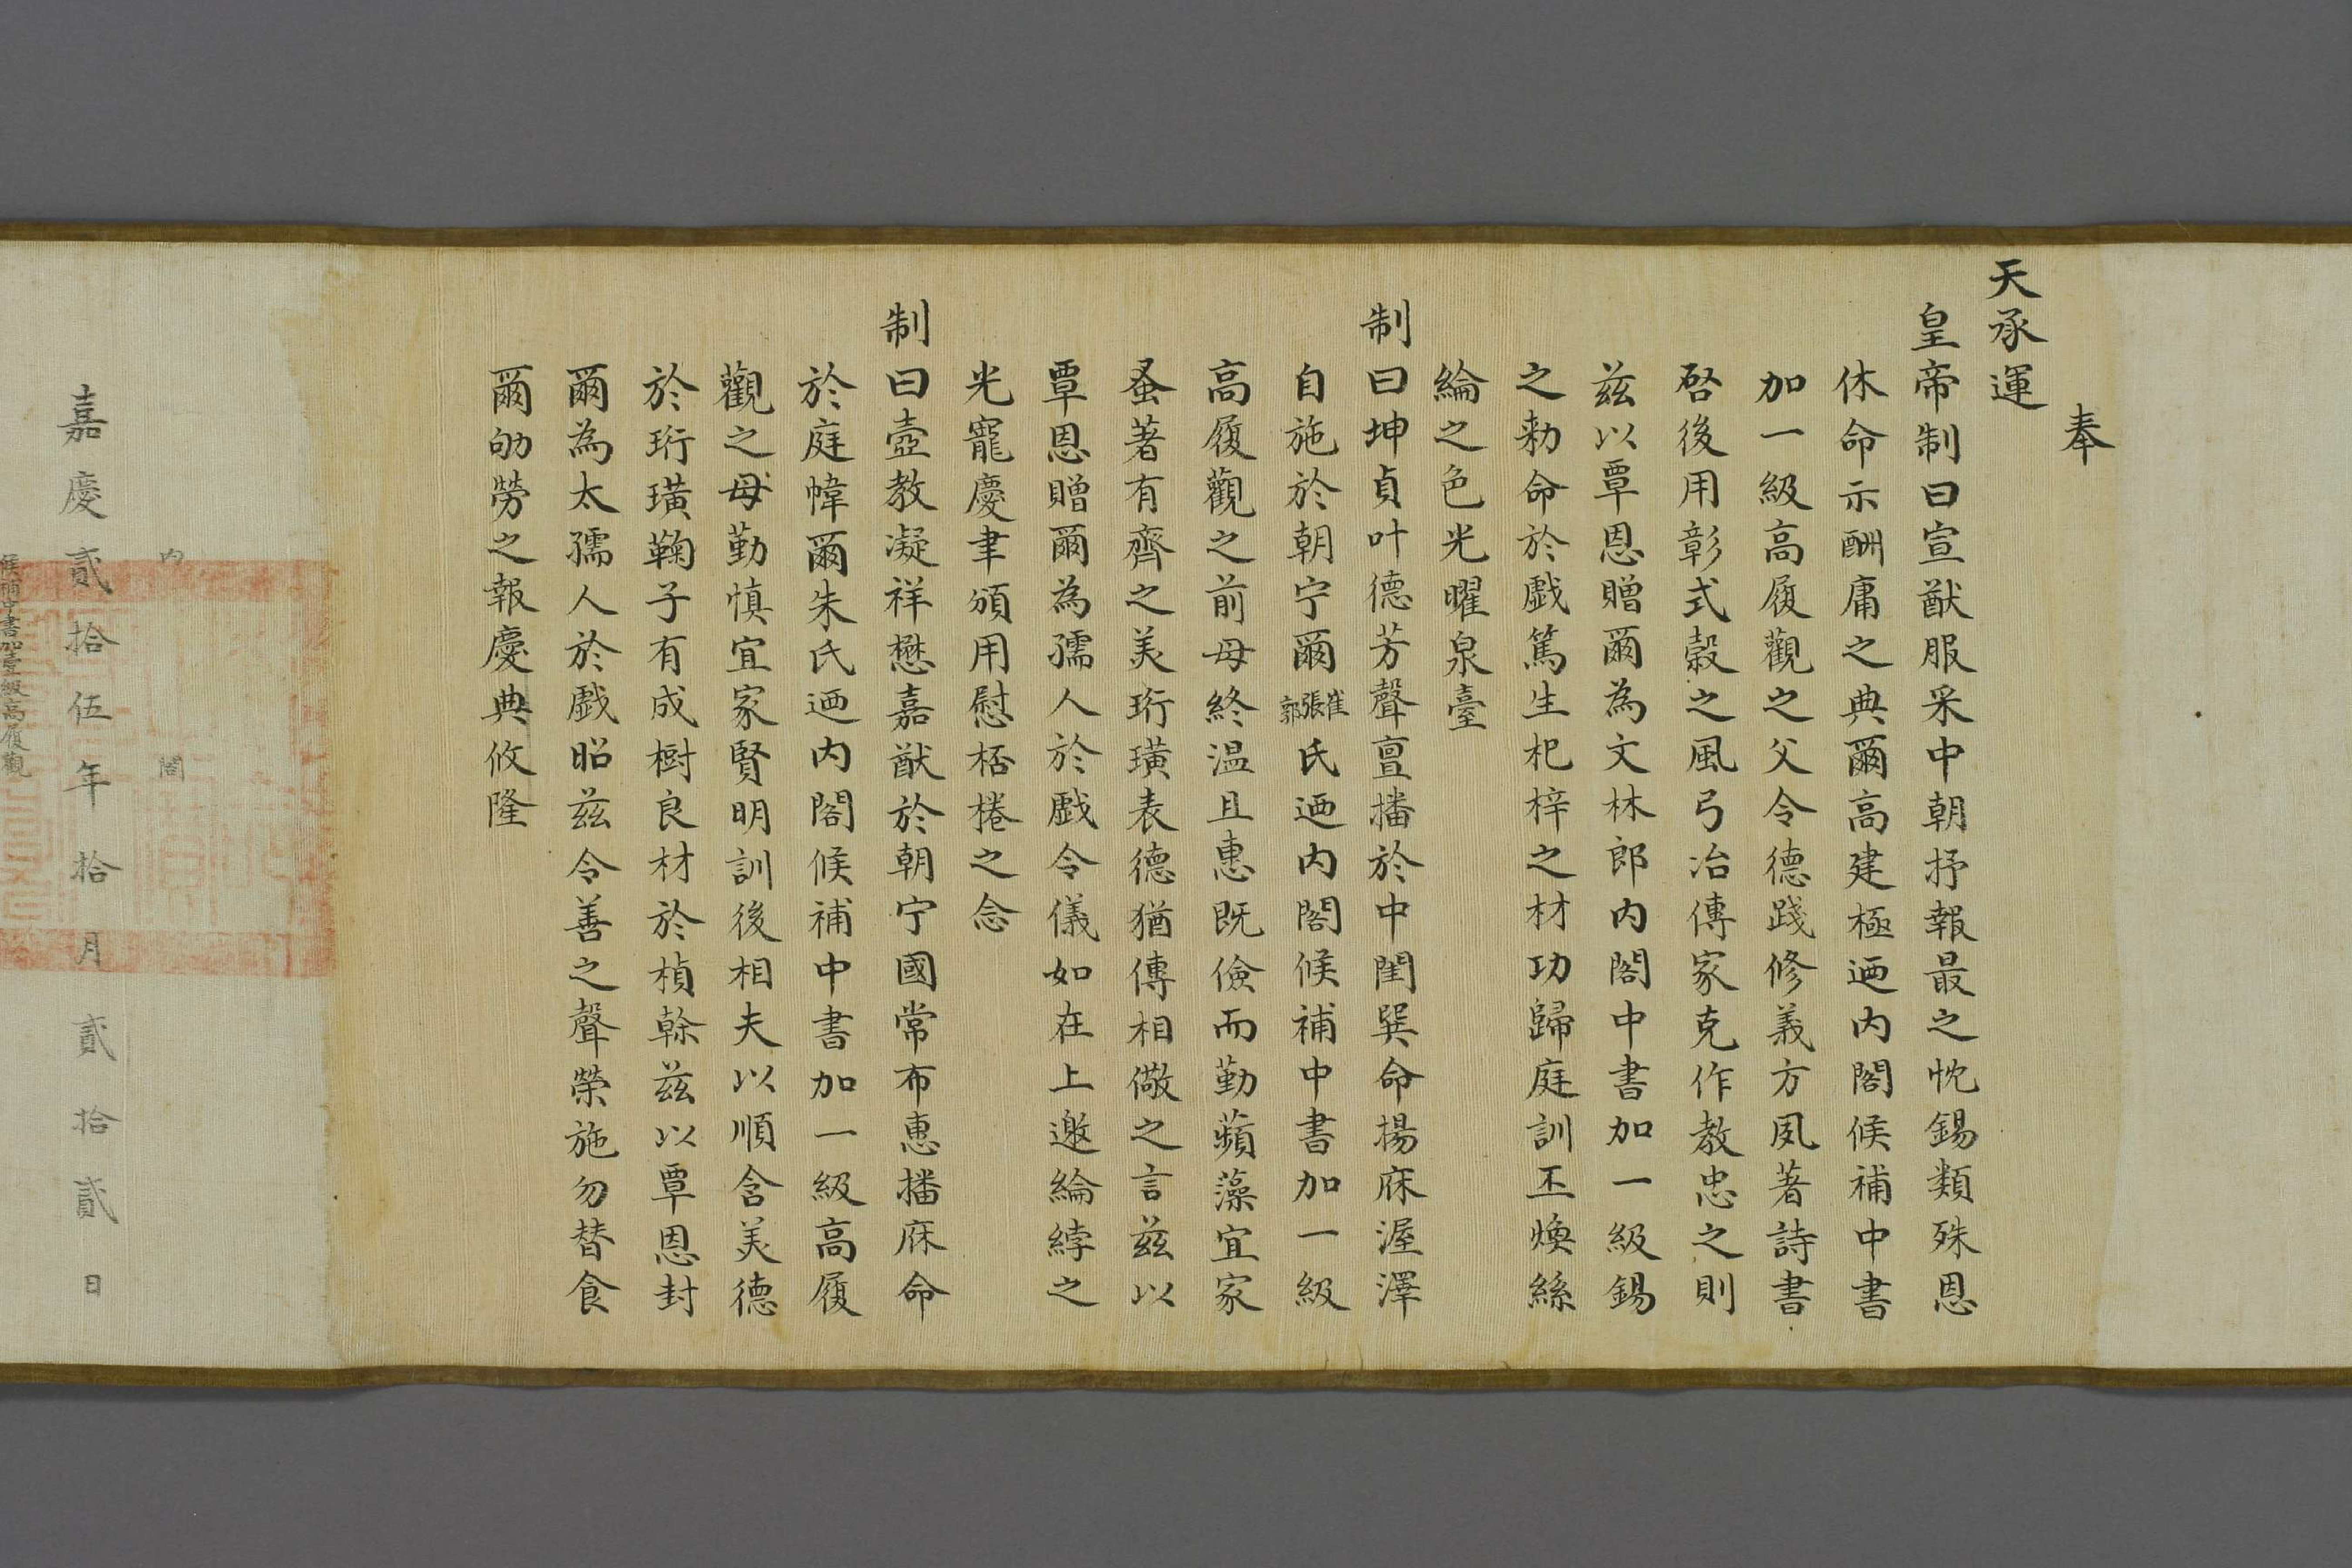 奉
天承運
皇帝制曰宣猷服采中朝抒報最之忱錫類殊恩
休命示酬庸之典爾高建極迺内閣候補中書
加一級高履觀之父令德踐修義方夙著詩書
啓後用彰式穀之風弓冶傳家克作教忠之則
茲以覃恩贈爾為文林郎内閣中書加一級錫
之勅命於戲篤生杞梓之材功歸庭訓丕煥絲
綸之色光曜泉臺
制曰坤貞叶德芳聲亶播於中閨巽命揚庥渥澤
自施於朝宁爾崔張郭氏迺内閣候補中書加一級
高履觀之前母終温且惠既儉而勤蘋藻宜家
蚤著有齊之美珩璜表德猶傳相儆之言茲以
覃恩贈爾為孺人於戲令儀如在上邀綸綍之
光寵慶聿頒用慰桮棬之念
制曰壼教凝祥懋嘉猷於朝宁國常布惠播庥命
於庭幃爾朱氏迺内閣候補中書加一級高履
觀之母勤慎宜家賢明訓後相夫以順含美德
於珩璜鞠子有成樹良材於楨榦茲以覃恩封
爾為太孺人於戲昭茲令善之聲榮施勿替食
爾劬勞之報慶典攸隆
内閣
嘉慶貳拾伍年拾月貳拾貳日
候補中書加壹級高履觀